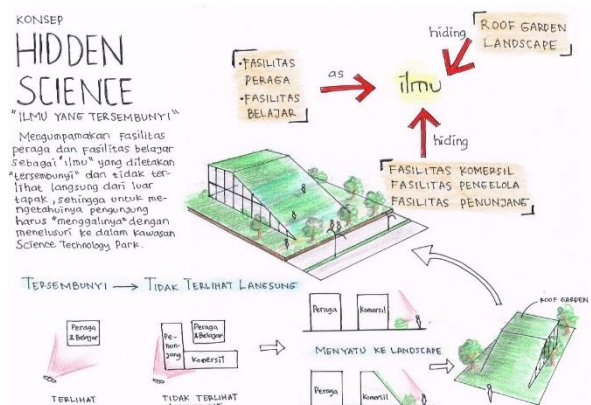 KONSEP
HIDDEN
SCIENCE
"ILMU YANG TERSEMBUNYI"
Mengumpamakan Fasilitas
peraga dan Fasilitas belajar
sebagai "ilmu" yang diletakan
"tersembunyi" dan tidak ter-
lihat langsung dari luar
tapak, sehingga untuk me-
ngetahuinya pengunjung
harus "menggalinya" dengan
menelusuri ke dalam Kawasan
Science Technology Park.
• FASILITAS
PERAGA
• FASILITAS
BELAJAR
as
ilmu
hiding
ROOF GARDEN
LANDSCAPE
hiding
FASILITAS KOMERSIL
FASILITAS PENGELOLA
FASILITAS PENUNJANG
TERSEMBUNYI → TIDAK TERLIHAT LANGSUNG
Peraga
& Belajar
TERLIHAT
Pe-
nun-
jang
Peraga
& Belajar
Komersil
TIDAK TERLIHAT
Peraga
Komersil
MENYATU KE LANDSCAPE
Peraga
Komersil
ROOF GARDEN